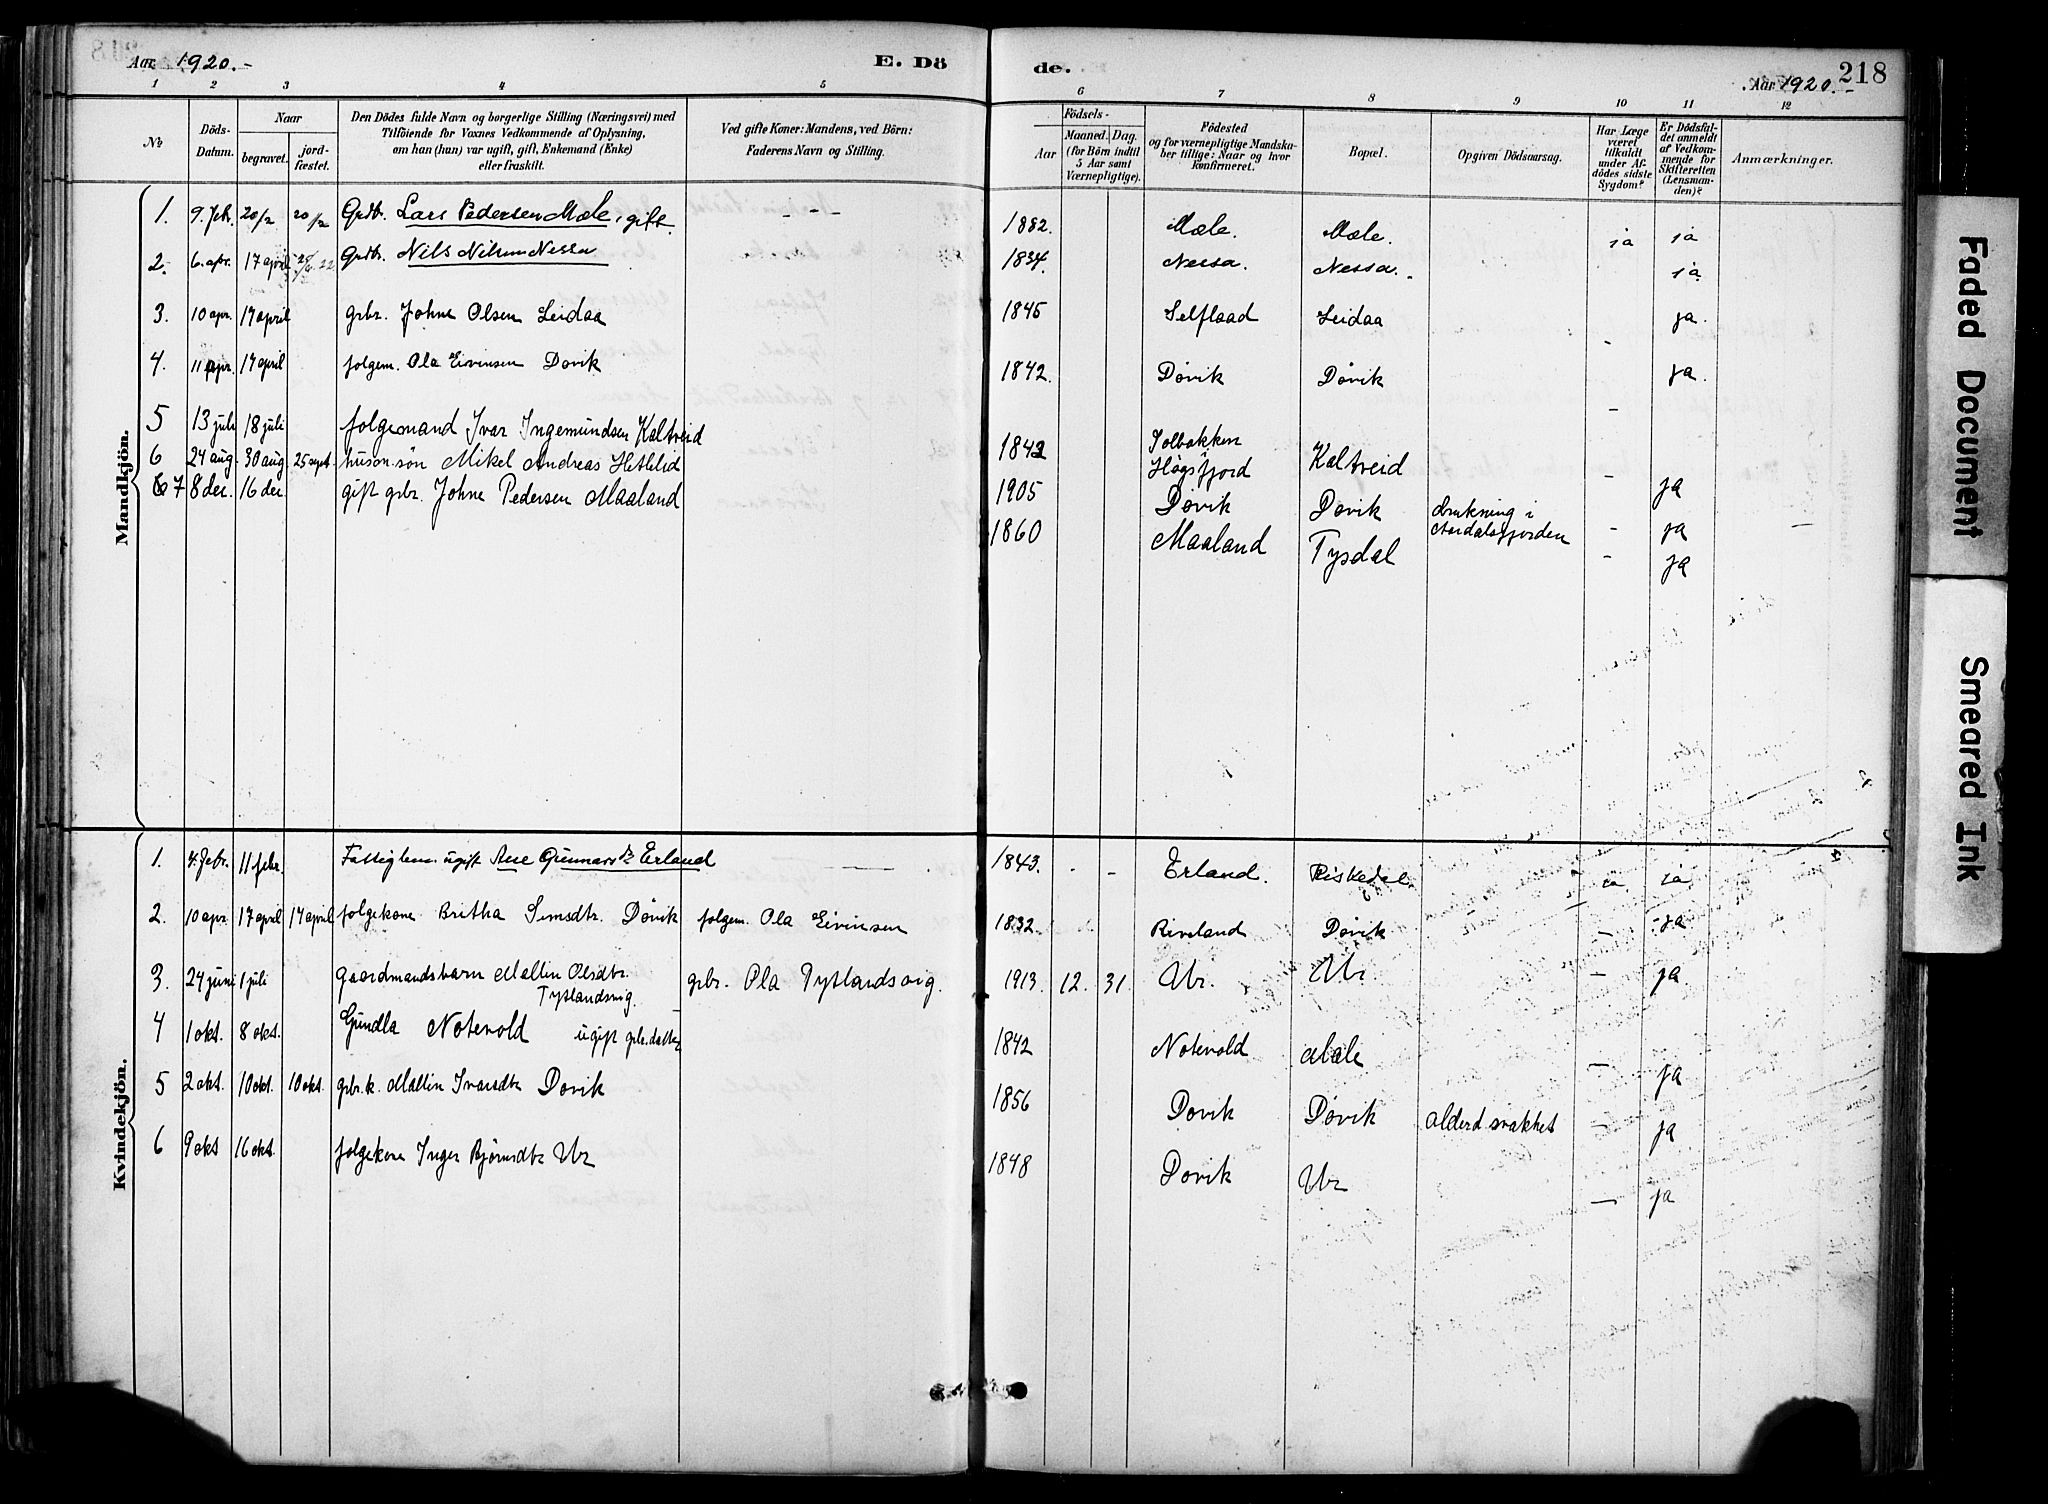 Aar 1920.-
E. Dö
de.
218
Aar 1920.-
1 2 3 4 5 6 7 8 9 10 11 12
No
Döds-Datum.
Naar
begravet.
jord-fæstet.
Den Dödes fulde Navn og borgerlige Stilling (Næringsvei) med
Tilföiende for Voxnes Vedkommende af Oplysning,
om han (hun) var ugift, gift, Enkemand (Enke)
eller fraskilt.
Ved gifte Koner: Mandens, ved Börn:
Faderens Navn og Stilling.
Födsels-
Aar
Maaned. Dag.
(for Börn indtil
5 Aar samt
Værnepligtige).
Födested
og for værnepligtige Mandska-
ber tillige: Naar og hvor
Konfirmeret.
Bopæl.
Opgiven Dödsaarsag.
Har Læge
været
tilkaldt
under Af-
dödes sidste
Sygdom?
Er Dödsfal-
det anmeldt
af Vedkom-
mende for
Skifteretten
(Lensman-
den)?
Anmærkninger.
Mandkjön.
1. 9. feb. 20/2 20/2 Grdb. Lars Pedersen Mæle, gift. - - - 1882. Mæle. Mæle. ja ja
2. 6. apr. 17 april Grdbr. Nils Nilsen Nessa 1834. Nessa. Nessa. ja
3. 10 apr. 17 april grbr. Johne Olsen Leidaa 1845 Selflaad Leidaa - ja.
4. 11 apr. 17 april folgem. Ola Eivinsen Døvik 1842. Døvik Døvik - ja.
5 13 juli 18 juli folgemand Ivar Ingemundsen Kaltveid 1842 Solbakken Høgsfjord Kaltveid - ja
6 24 aug. 30 aug. 25 sept. husm.søn Mikel Andreas Hetlelid 1905 Døvik Døvik drukning i Aardalsfjorden - ja -
7 8 dec. 16 dec. gift grbr. Johne Pedersen Maaland 1860 Maaland Tysdal - ja
Kvindekjön.
1. 4. febr. 11 febr. Fattiglem. ugift Ane Gunnarsd. Erland 1843. - - Erland. Riskedal. ja ja
2. 10 apr. 17 april 17 april folgekone Britha Simsdtr. Døvik folgem. Ola Eivinsen 1832. Riveland Døvik - ja
3. 24 juni 1 juli gaardmandsbarn Mallin Olsdtr. Tytlandsvig. grbr. Ola Tytlandsvig. 1913. 12. 31. Ur. Ur - ja
4 1 okt. 8 okt. Gundla Notevold ugift grbr. datter 1842 Notevold Mæle - ja
5 2 okt. 10 okt. 10 okt. grbr.k. Mallin Ivarsdtr Døvik 1856 Døvik Døvik alderdsvakhet - ja
6 9 okt 16 okt. folgekone Inger Bjørnsdtr Ur 1848 Døvik Ur - ja
Faded Document
Smeared Ink